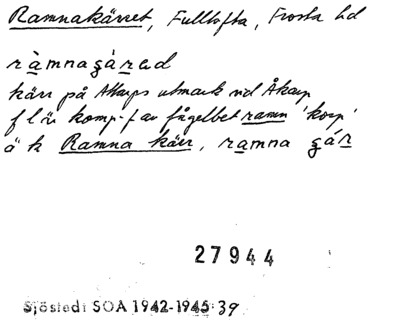 Ramnakärret, Fulltofta, Frosta hd
ràmnagárad
kärr på Åkarps utmark vid Åkarp
f l är komp.-f av fågelbet ramn 'korp'
ä k Ramna kärr, ramna gár
27944
Sjöstedt SOA 1942-1945:39